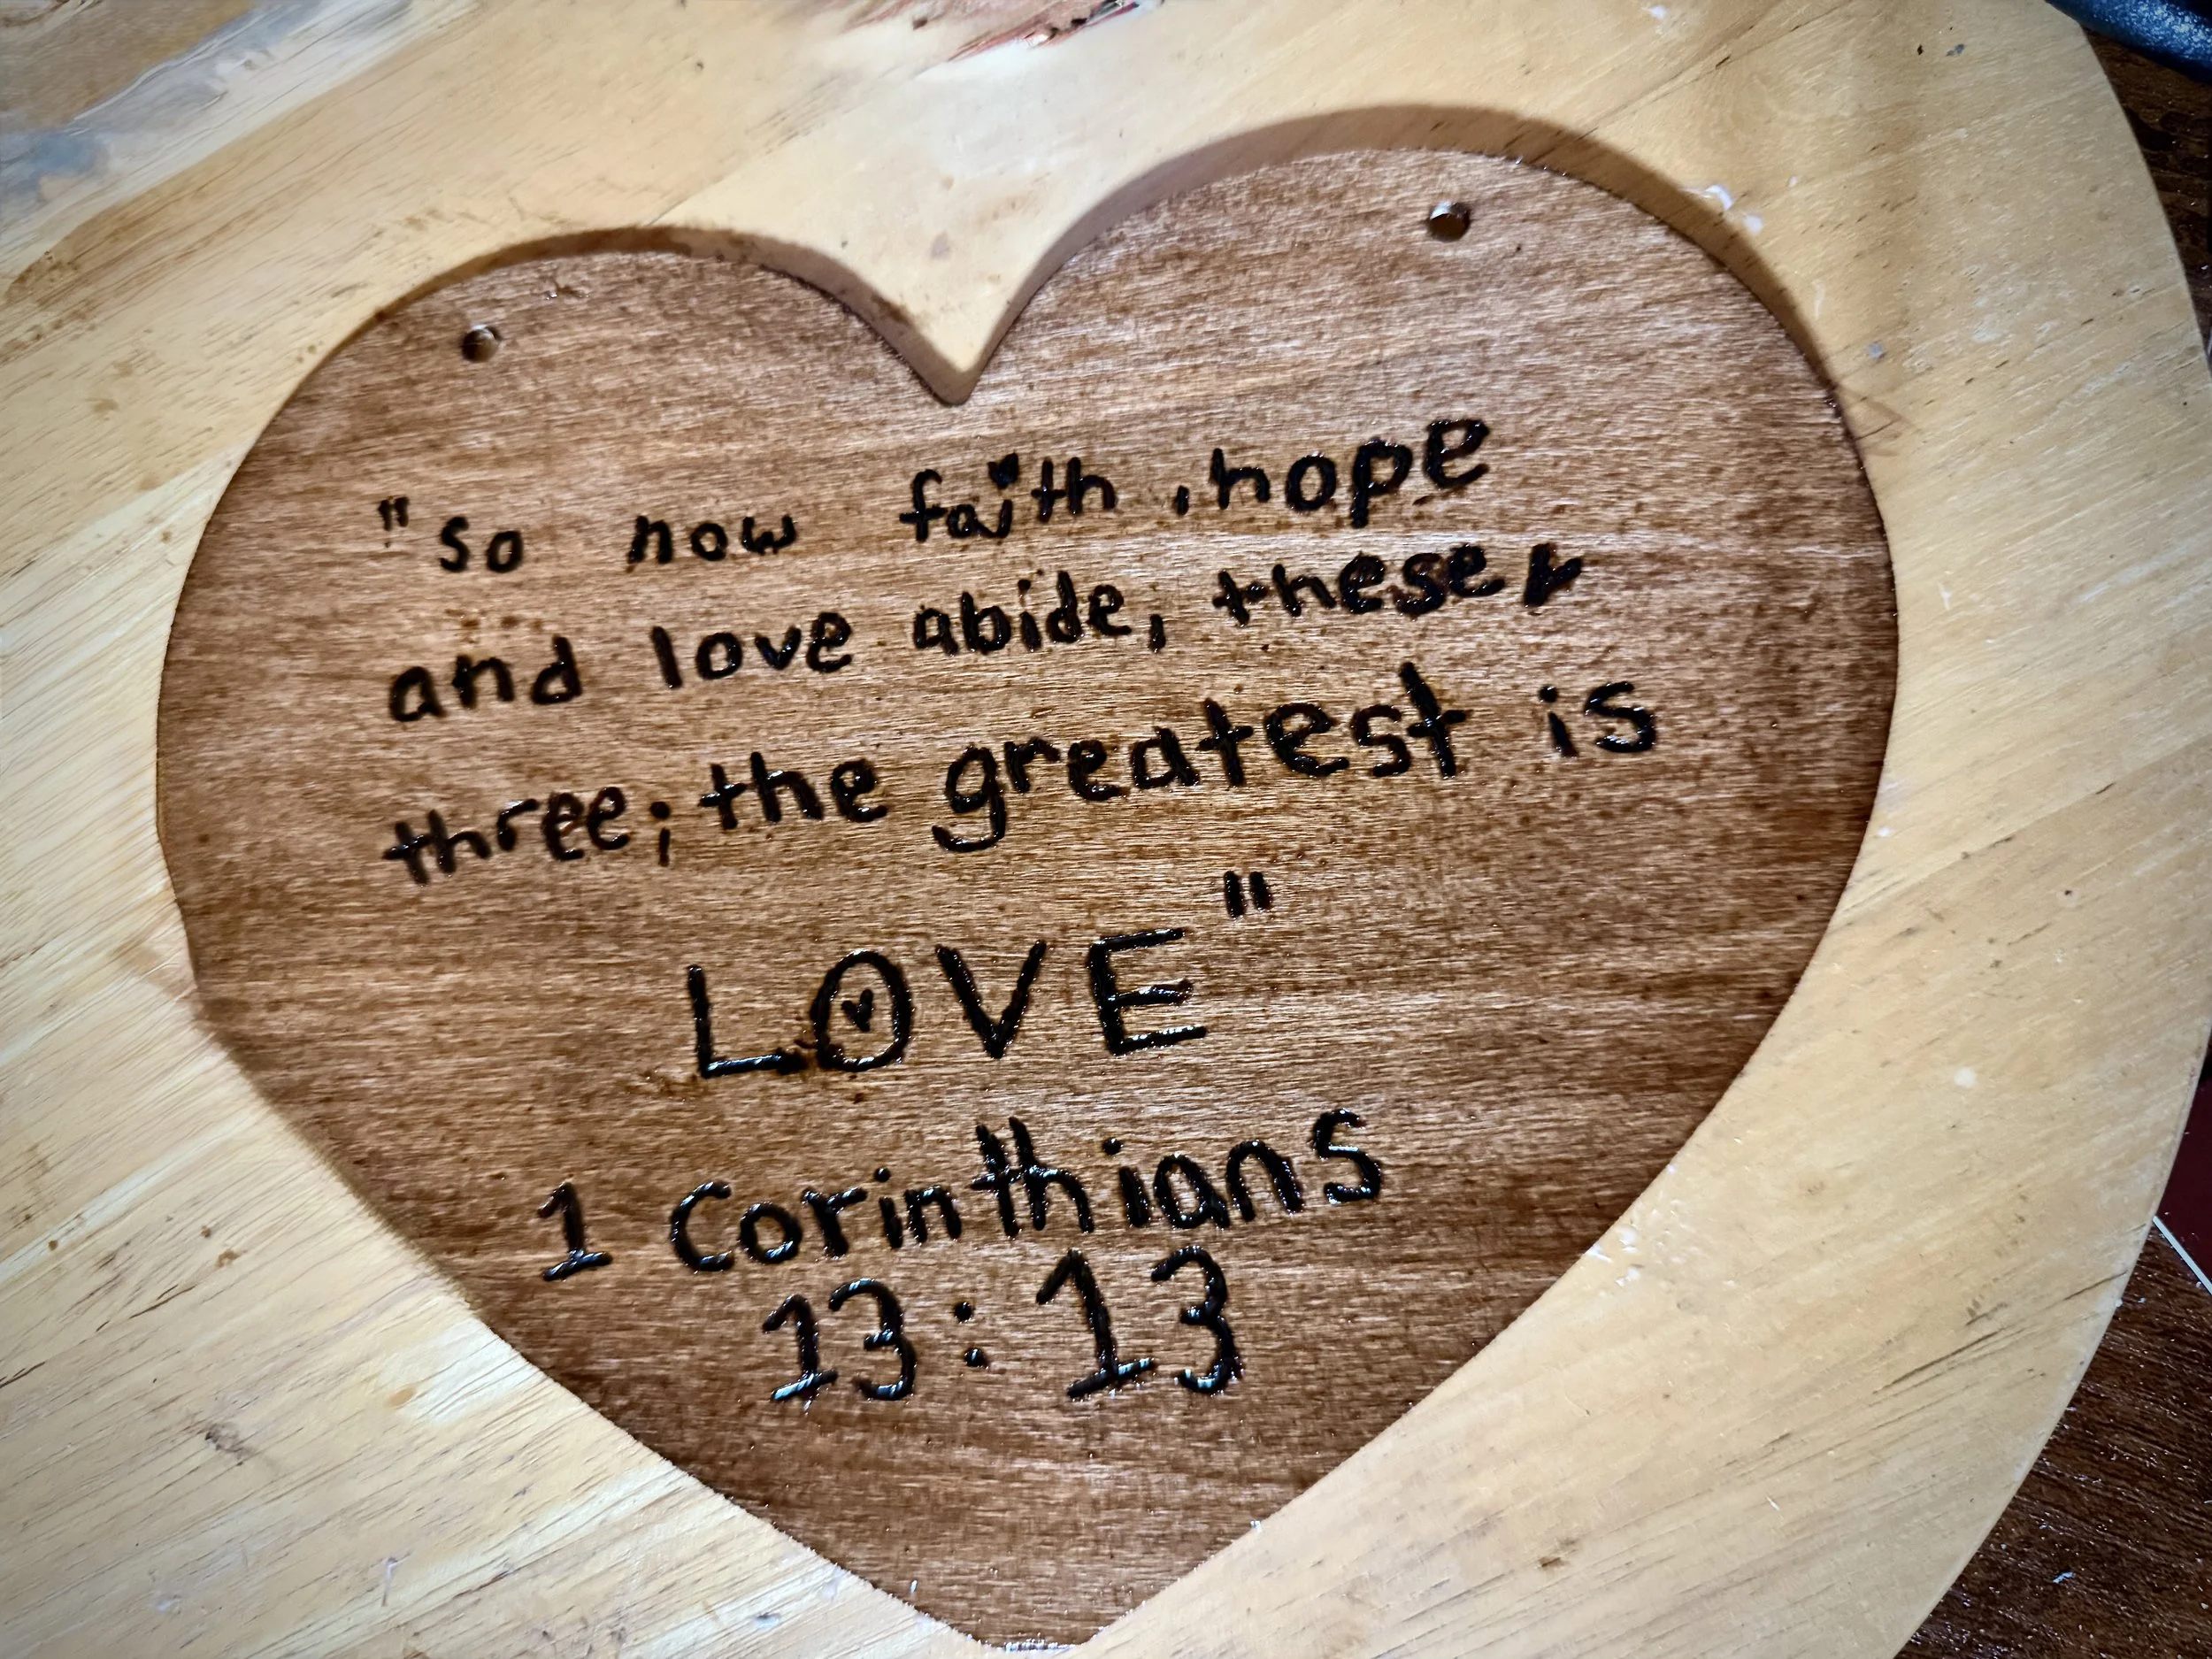 "so now faith, hope
and love abide, these
three; the greatest is
LOVE"
1 Corinthians
13:13